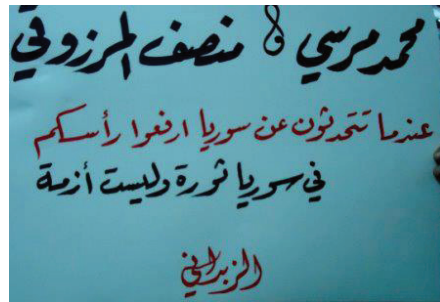 محمد مرسي & منصف المرزوقي
عندما تتحدثون عن سوريا ارفعوا رأسكم
في سوريا ثورة وليست أزمة
الزبداني